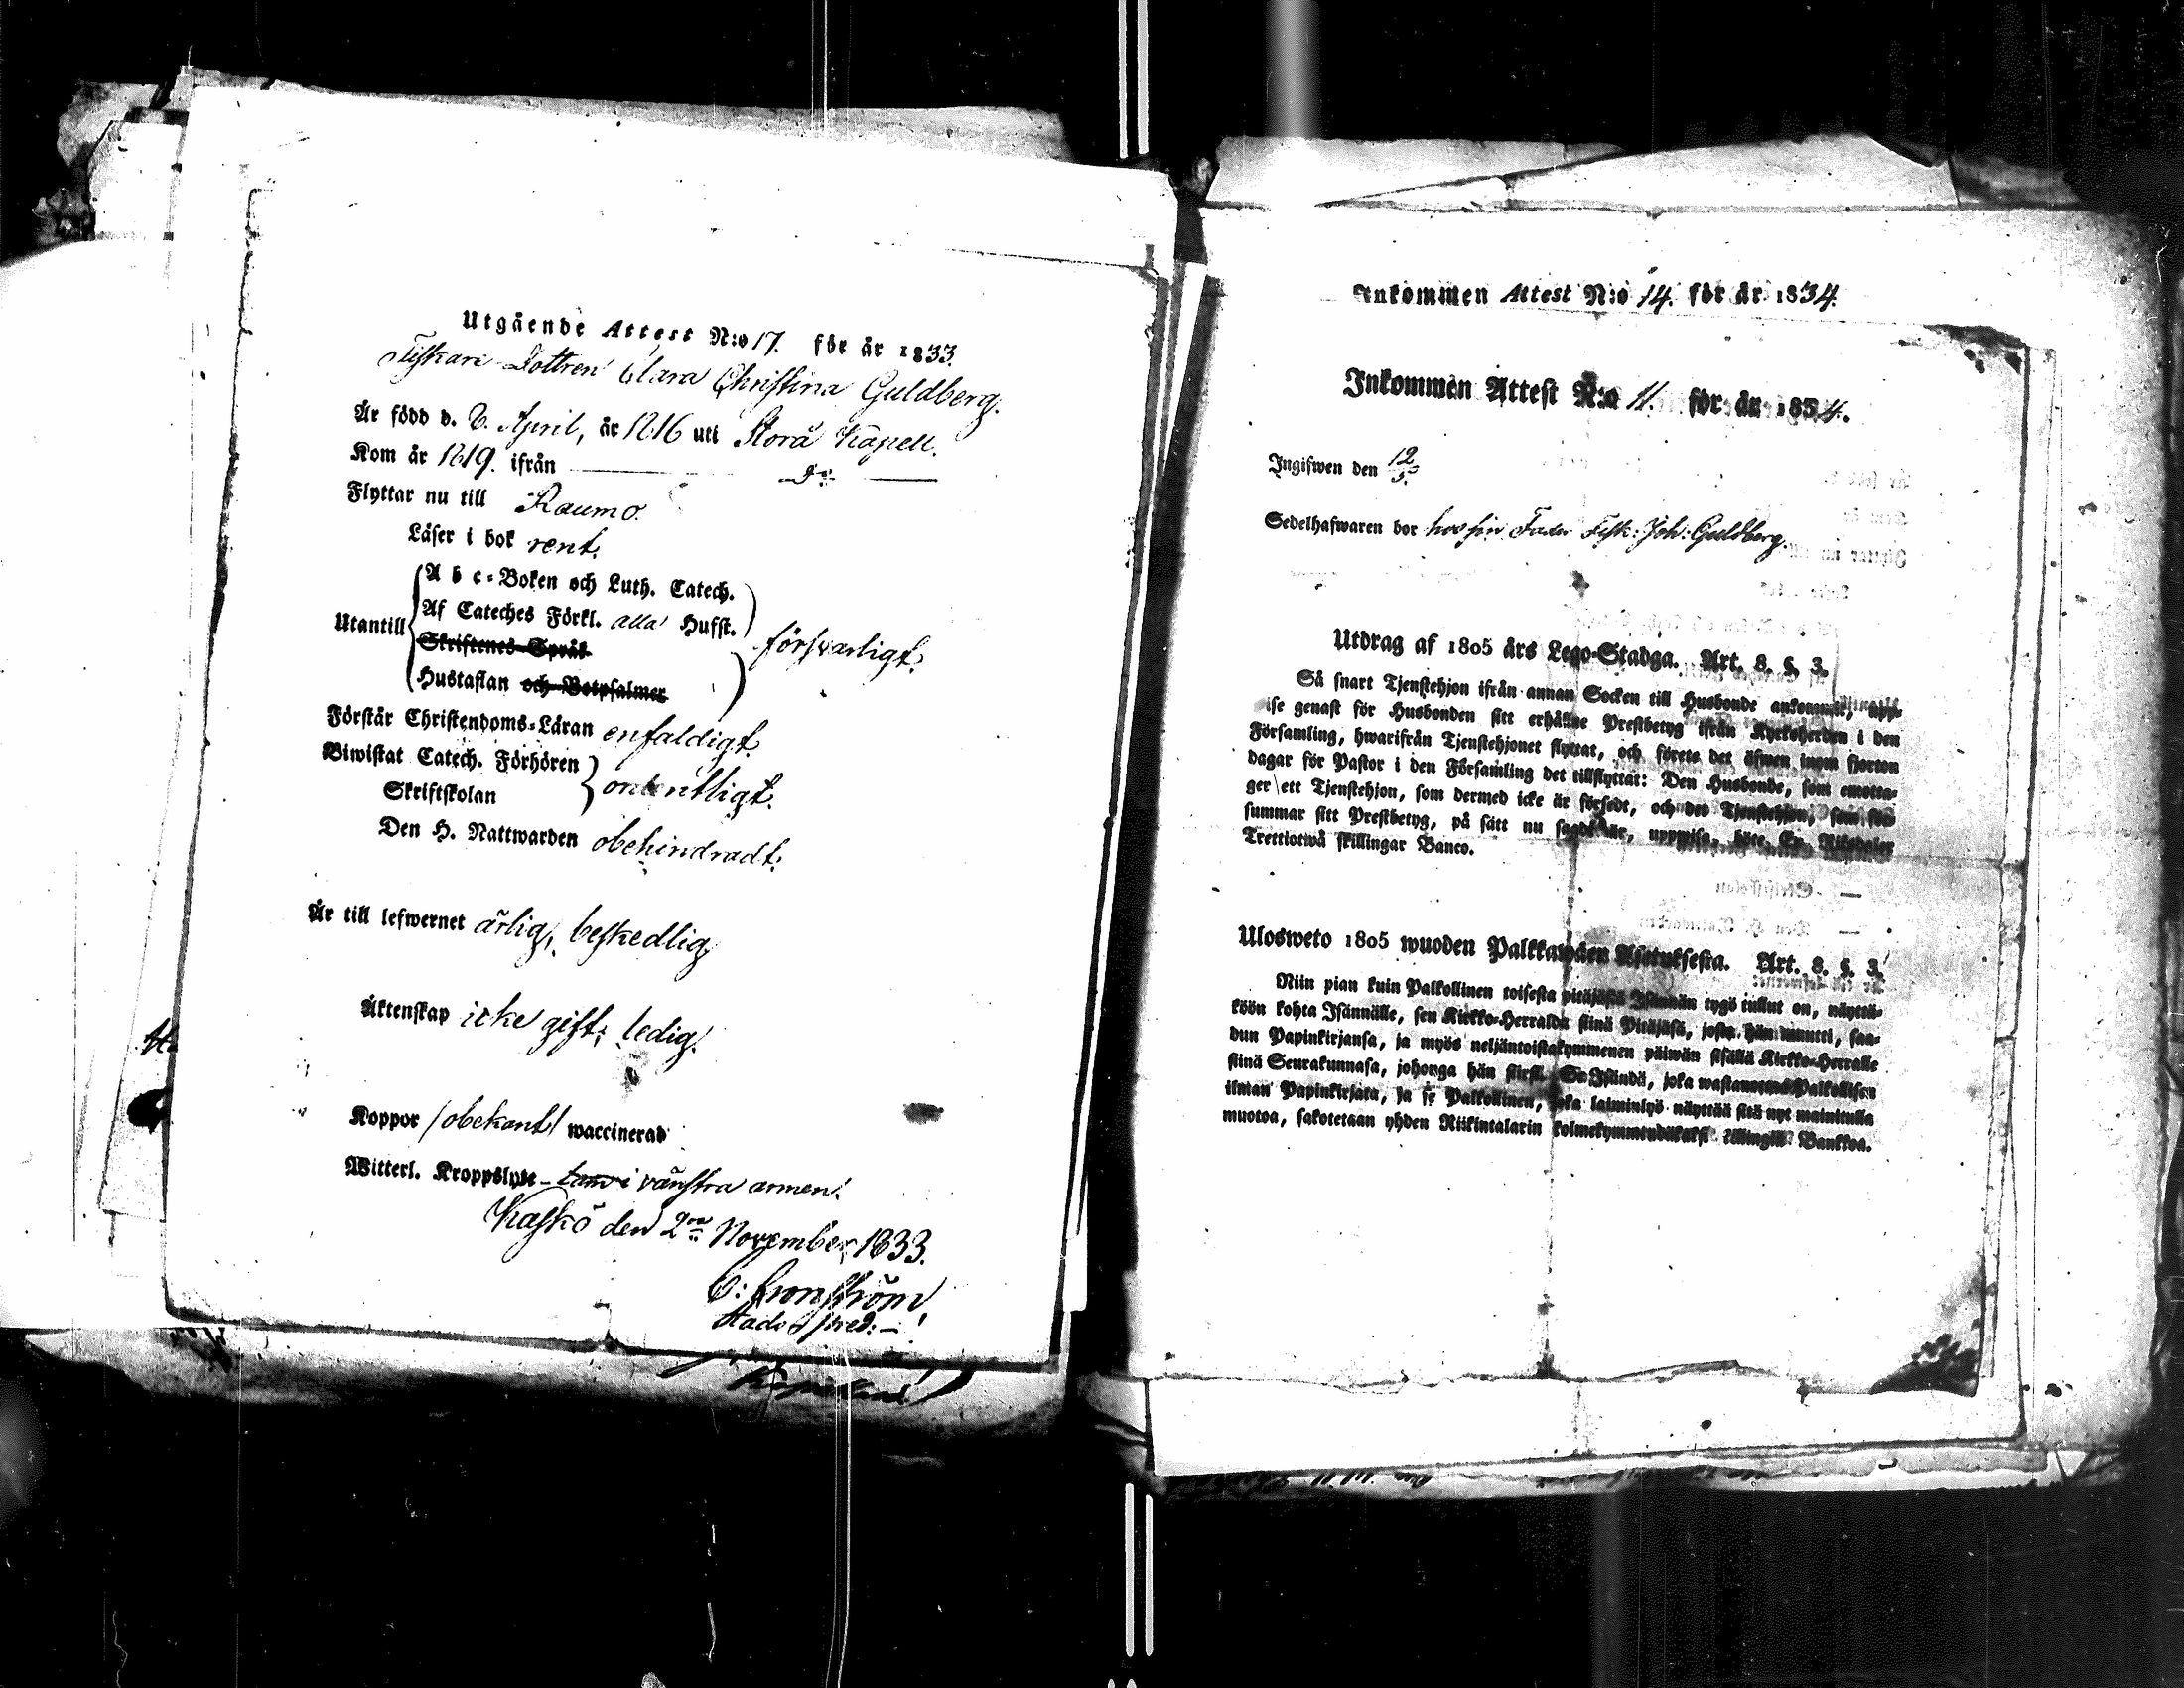 Utgående Attest N:o 17. för år 1833.
Fiskare Dottren Clara Christina Guldberg.
Är född d. 6. April, år 1816 uti Storå Kapell.
Kom år 1819. ifrån — Do —
Flyttar nu till Raumo.
Läser i bok rent.
A b c-Boken och Luth. Catech.
Af Cateches Förkl. alla Hufst.
Utantill
Skriftenes Språk
försvarligt.
Hustaflan och Botpsalmer
Förstår Christendoms-Läran enfaldigt
Biwistat Catech. Förhören
Skriftskolan
ordentligt.
Den H. Nattwarden obehindradt.
Är till lefwernet ärlig, beskedlig
Äktenskap icke gift, ledig.
Koppor /obekant/ waccinerad
Witterl. Kroppslyte – i vänstra armen.
Kaskö den 2dra November 1833.
C: Cronström
Stads pred: –
Inkommen Attest N:o 14. för år 1834.
Inkommen Attest N:o 11. för år 1834.
Ingifwen den 12/5.
Sedelhafwaren bor hos sin Fader Fisk: Joh: Guldberg.
Utdrag af 1805 års Lego-Stadga. Art. 8. §. 3.
Så snart Tjenstehjon ifrån annan Socken till Husbonde ankommit, upp-
wise genast för Husbonden sitt erhållne Prestbetyg ifrån Kyrkoherden i den
Församling, hwarifrån Tjenstehjonet flyttat, och förete det äfwen inom fjorton
dagar för Pastor i den Församling det tillflyttat: Den Husbonde, som emotta-
ger ett Tjenstehjon, som dermed icke är försedt, och det Tjenstehjon, som för-
summar sitt Prestbetyg, på sätt nu sagdt är, uppwisa, böte En Riksdaler
Trettiotwå skillingar Banco.
Ulosweto 1805 wuoden Palkkawäen Asetuksesta. Art. 8. §. 3.
Niin pian kuin Palkollinen toisesta pitäjästä Isännän tygö tullut on, näyttä-
köön kohta Isännälle, sen Kirkko-Herralda siinä Pitäjäsä, josta hän muutti, saa-
dun Papinkirjansa, ja myös neljäntoistakymmenen päiwän sisällä Kirkko-Herralle
siinä Seurakunnasa, johonga hän siirsi. Se Isändä, joka wastanottaa Palkollisen
ilman Papinkirjata, ja se Palkollinen, joka laiminlyö näyttää sitä nyt mainitulla
muotoa, sakotetaan yhden Riikintalarin kolmekymmendäkaksi killingiä Bankkoa.